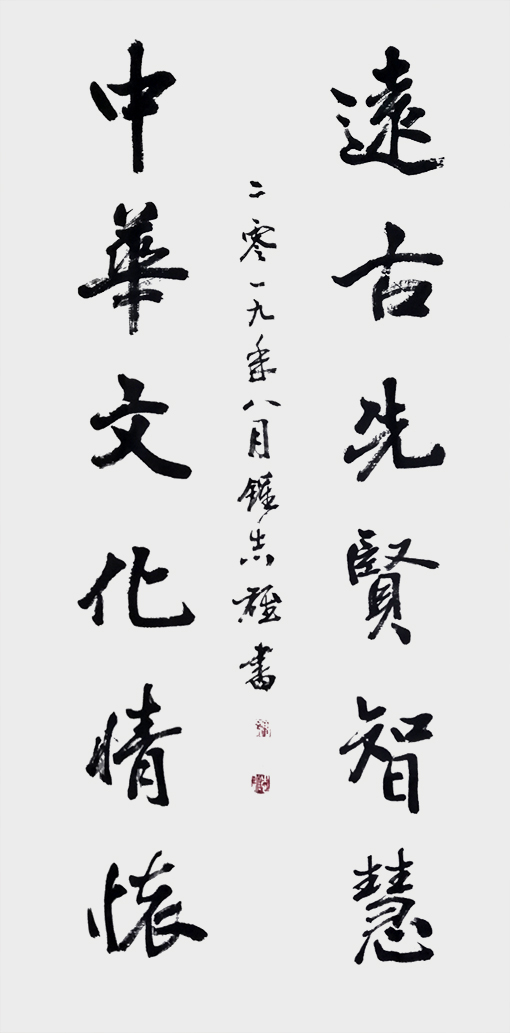 遠古先賢智慧
二零一九年八月鍾志雄書
中華文化情懷